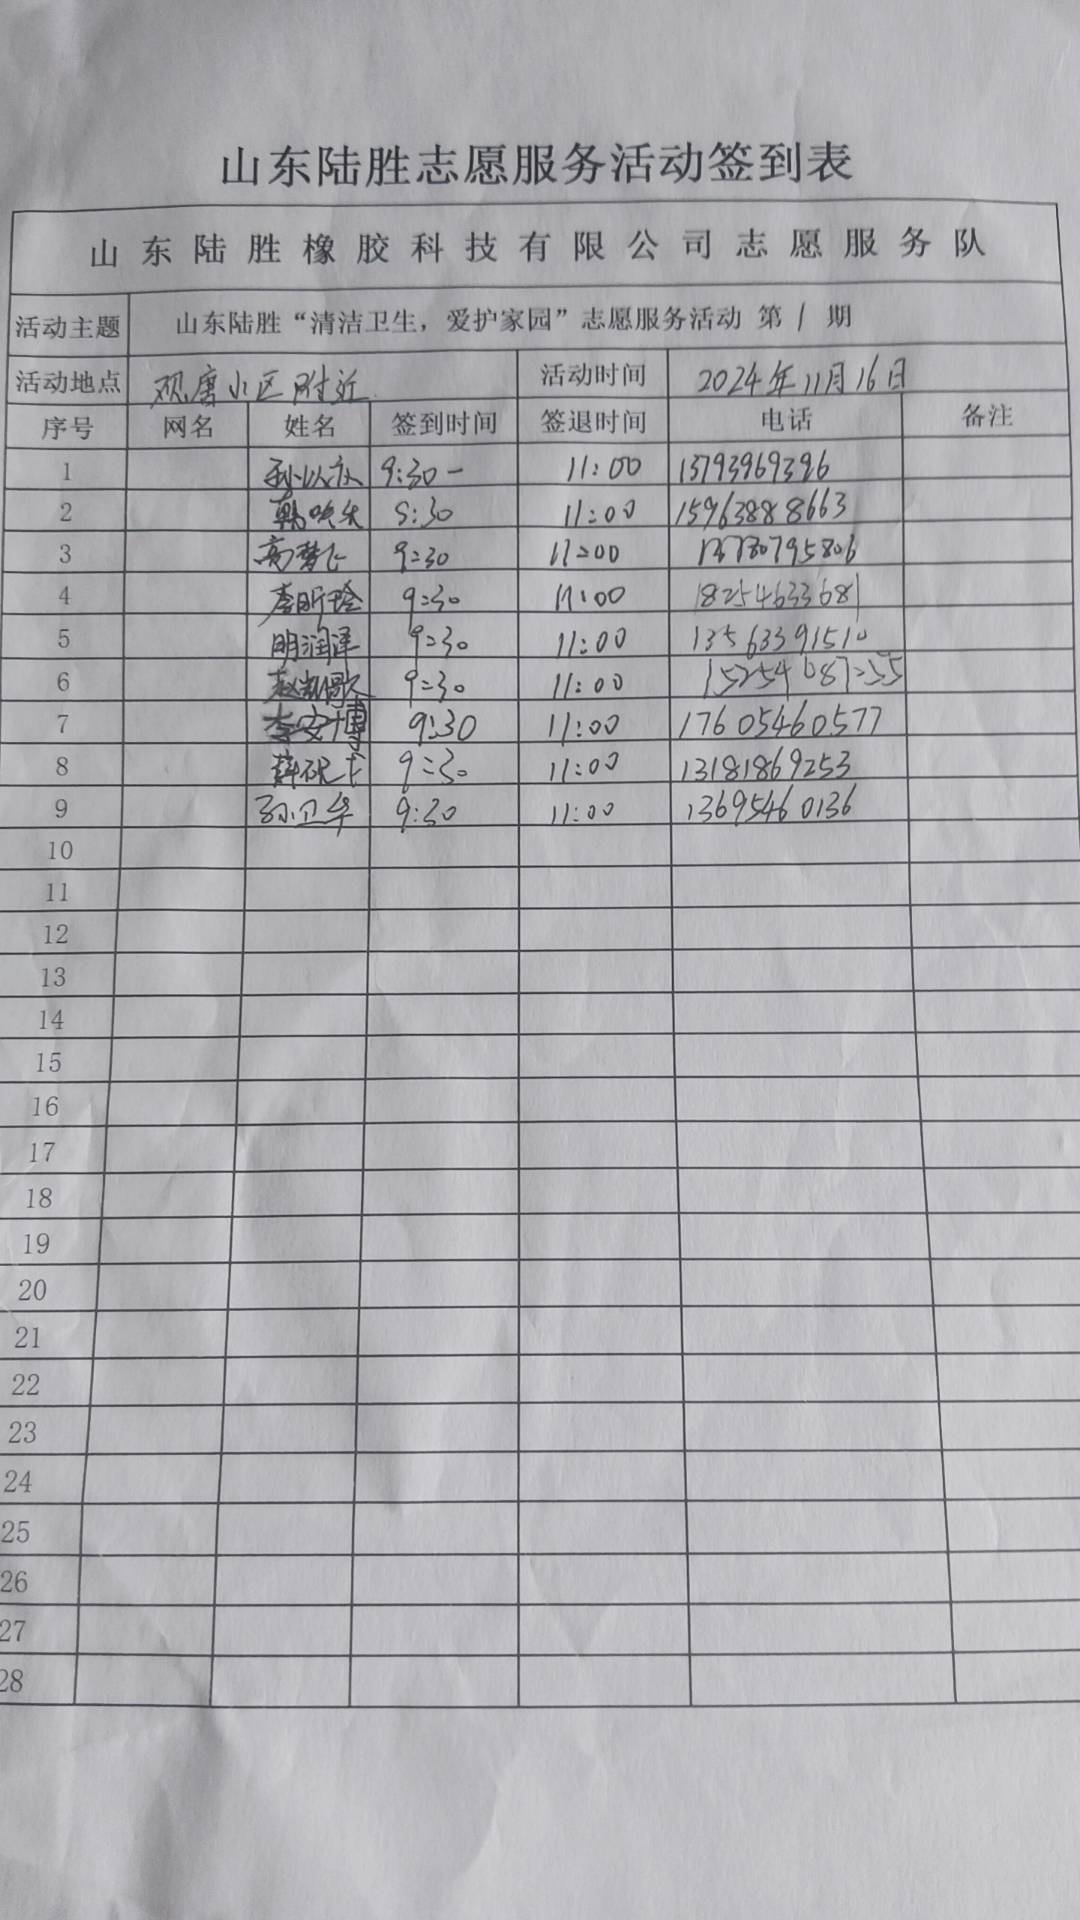 山东陆胜志愿服务活动签到表
山东陆胜橡胶科技有限公司志愿服务队
活动主题 山东陆胜“清洁卫生，爱护家园”志愿服务活动 第1期
活动地点 观唐小区附近 活动时间 2024年11月16日
序号 网名 姓名 签到时间 签退时间 电话 备注
1 9:30- 11:00 13793969396
2 11:00 15963888663
3 高梦飞 9:30 11:00 13780795806
4 李昕玲 9:30 11:00 18254633681
5 明润泽 9:30 11:00 13563391510
6 9:30 11:00
7 李安博 9:30 11:00 17605460577
8 9:30 11:00 13181869253
9 孙卫华 9:30 11:00 13695460136
10
11
12
13
14
15
16
17
18
19
20
21
22
23
24
25
26
27
28